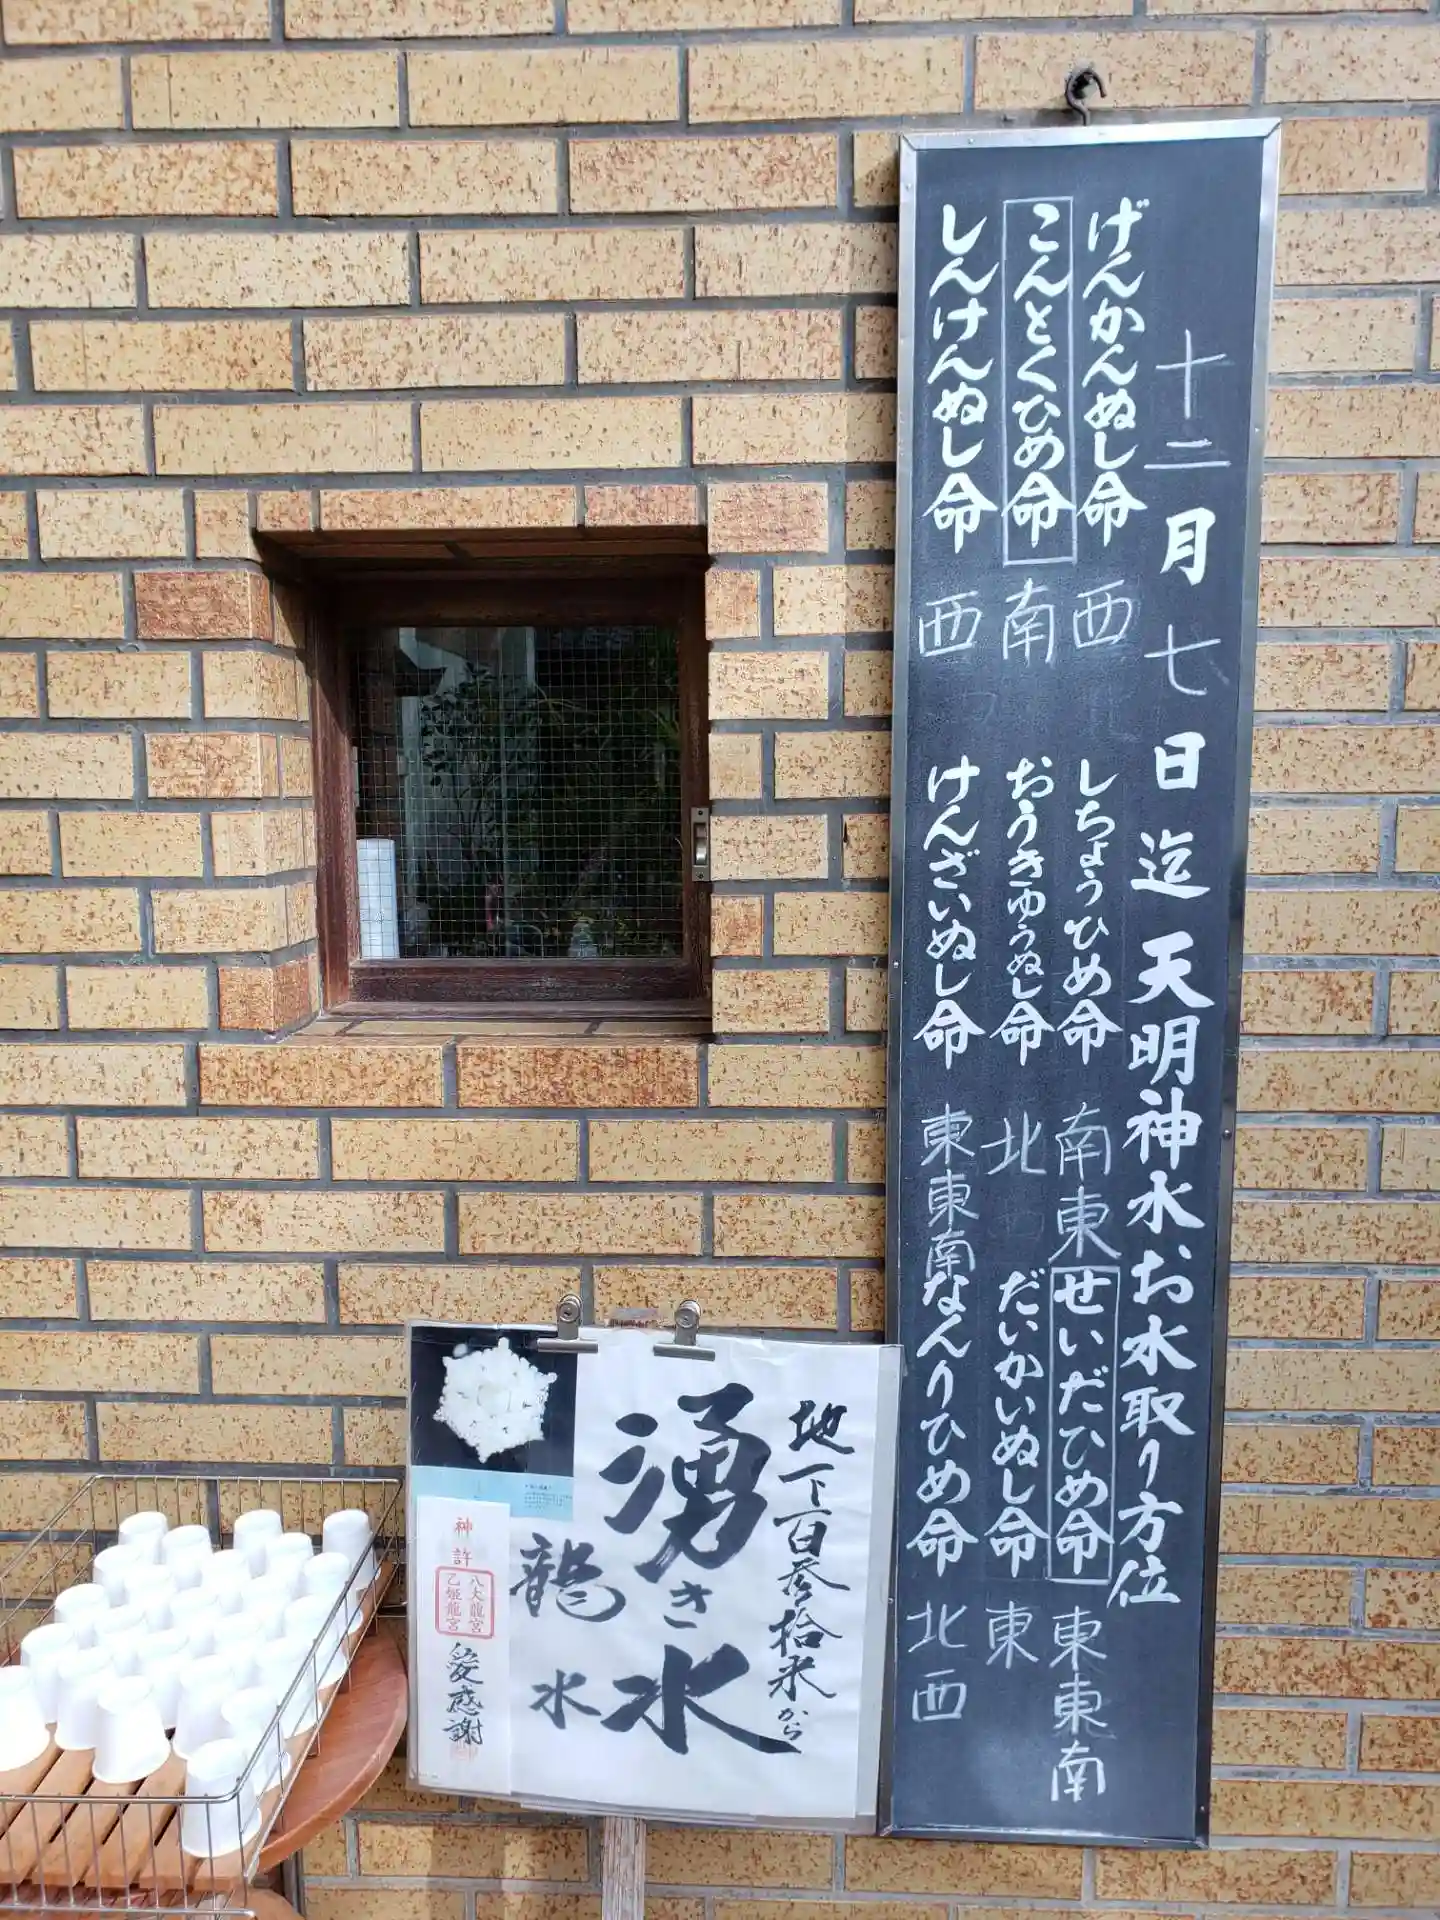 十二月七日迄 天明神水お水取り方位
げんかんぬし命 西
こんとくひめ命 南
しんけんぬし命 西
しちょうひめ命 南東
おうきゅうぬし命 北
けんざいぬし命 東東南
せいだひめ命 東東南
だいかいぬし命 東
なんりひめ命 北西
地下百参拾米から
湧き水
龍水
神許
八大龍宮
乙姫龍宮
愛感謝